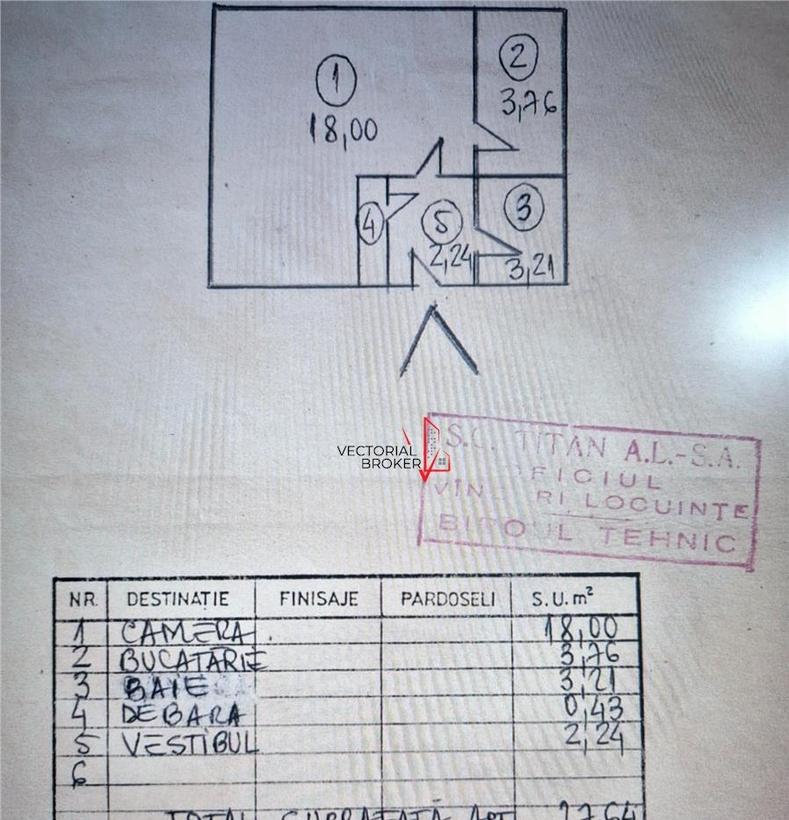 1
2
18,00
3,76
4
5
3
2,24
3,21
VECTORIAL
BROKER
S.C. TITAN A.L.-S.A.
FICIUL
VÎN RI LOCUINTE
BIROUL TEHNIC
NR. DESTINAȚIE FINISAJE PARDOSELI S.U.m²
1 CAMERA 18,00
2 BUCATARIE 3,76
3 BAIE 3,21
4 DEBARA 0,43
5 VESTIBUL 2,24
6
TOTAL SUPRAFAȚĂ APT 27,64